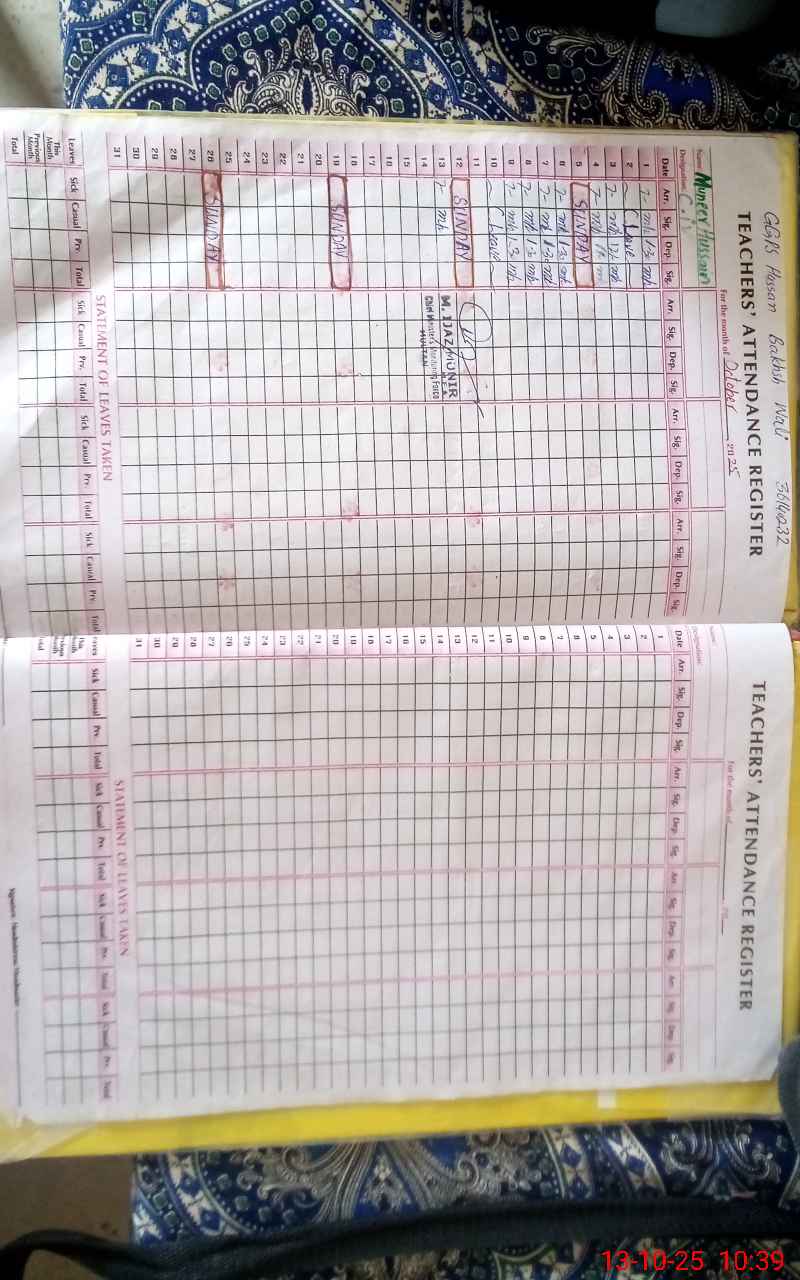 GGPS Hassan Bakhsh Wali 36140232
TEACHERS' ATTENDANCE REGISTER
For the month of October 2025
Name: Muneer Hussain
Designation:
Date Arr. Sig. Dep. Sig. Arr. Sig. Dep. Sig. Arr. Sig. Dep. Sig. Arr. Sig. Dep. Sig.
1 7- mh 1-30 mh
2 Leave
3 7- mh 12 mh
4 7- mh
5 SUNDAY
6 7- mh 1-30 mh
7 7- mh 1-30 mh
8 7- mh 1-30 mh
9 7- mh 1-30 mh
10 Leave
11
12 SUNDAY
13 7- mh
M. IJAZ MUNIR
M.E.A
Chief Minister's Monitoring Force
MULTAN
14
15
16
17
18
19 SUNDAY
20
21
22
23
24
25
26 SUNDAY
27
28
29
30
31
STATEMENT OF LEAVES TAKEN
Leaves Sick Casual Prv. Total Sick Casual Prv. Total Sick Casual Prv. Total Sick Casual Prv. Total
This Month
Previous Month
Total
TEACHERS' ATTENDANCE REGISTER
For the month of 20
Name:
Designation:
Date Arr. Sig. Dep. Sig. Arr. Sig. Dep. Sig. Arr. Sig. Dep. Sig. Arr. Sig. Dep. Sig.
1
2
3
4
5
6
7
8
9
10
11
12
13
14
15
16
17
18
19
20
21
22
23
24
25
26
27
28
29
30
31
STATEMENT OF LEAVES TAKEN
Sick Casual Prv. Total Sick Casual Prv. Total Sick Casual Prv. Total Sick Casual Prv. Total
13-10-25 10:39